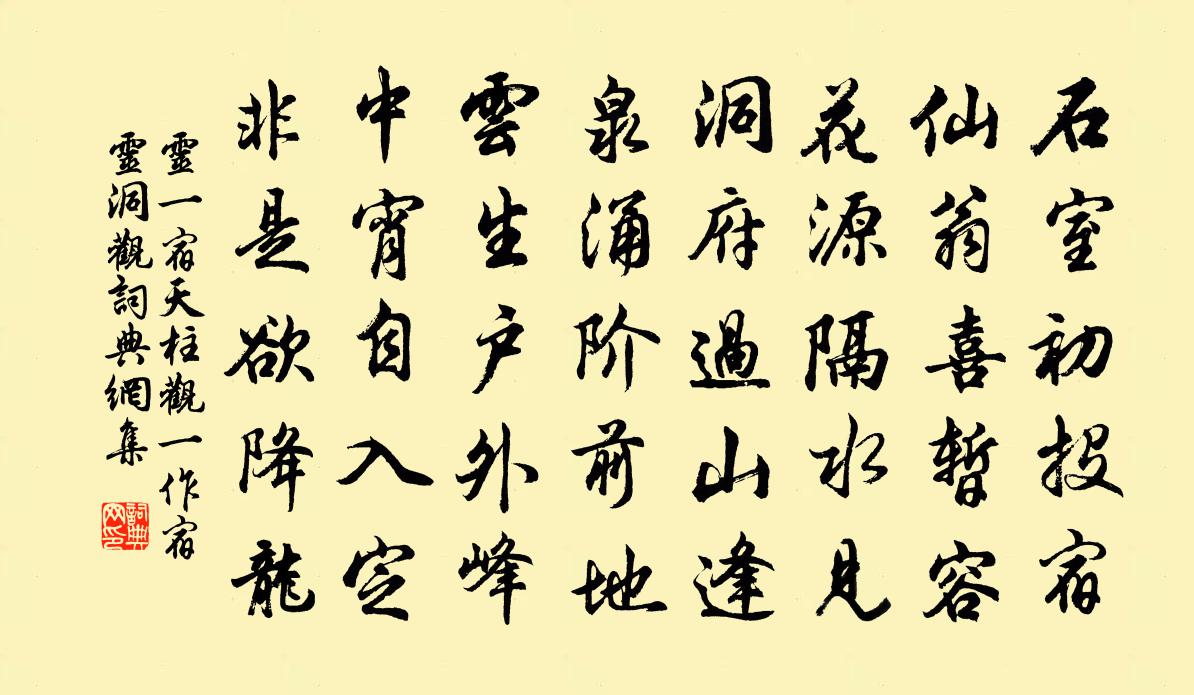 石室初投宿
仙翁喜暫容
花源隔水見
洞府過山逢
泉涌阶前地
雲生户外峰
中宵自入定
非是欲降龍
靈一宿天柱觀一作宿
靈洞觀詞典網集
詞典網印